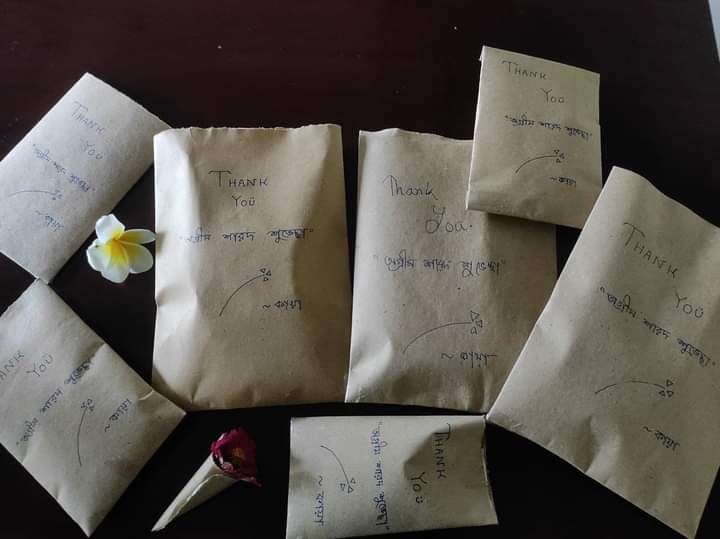 THANK
YOU
"অগ্রীম শারদ শুভেচ্ছা"
~ কায়া
THANK
YOU
"অগ্রীম শারদ শুভেচ্ছা"
~ কায়া
Thank
You.
"অগ্রীম শারদ শুভেচ্ছা"
~ কায়া
THANK
YOU
"অগ্রীম শারদ শুভেচ্ছা"
~ কায়া
THANK
YOU
"অগ্রীম শারদ শুভেচ্ছা"
~ কায়া
ANK
YOU
"অগ্রীম শারদ শুভেচ্ছা"
~ কায়া
THANK
YOU
"অগ্রীম শারদ শুভেচ্ছা"
~ কায়া